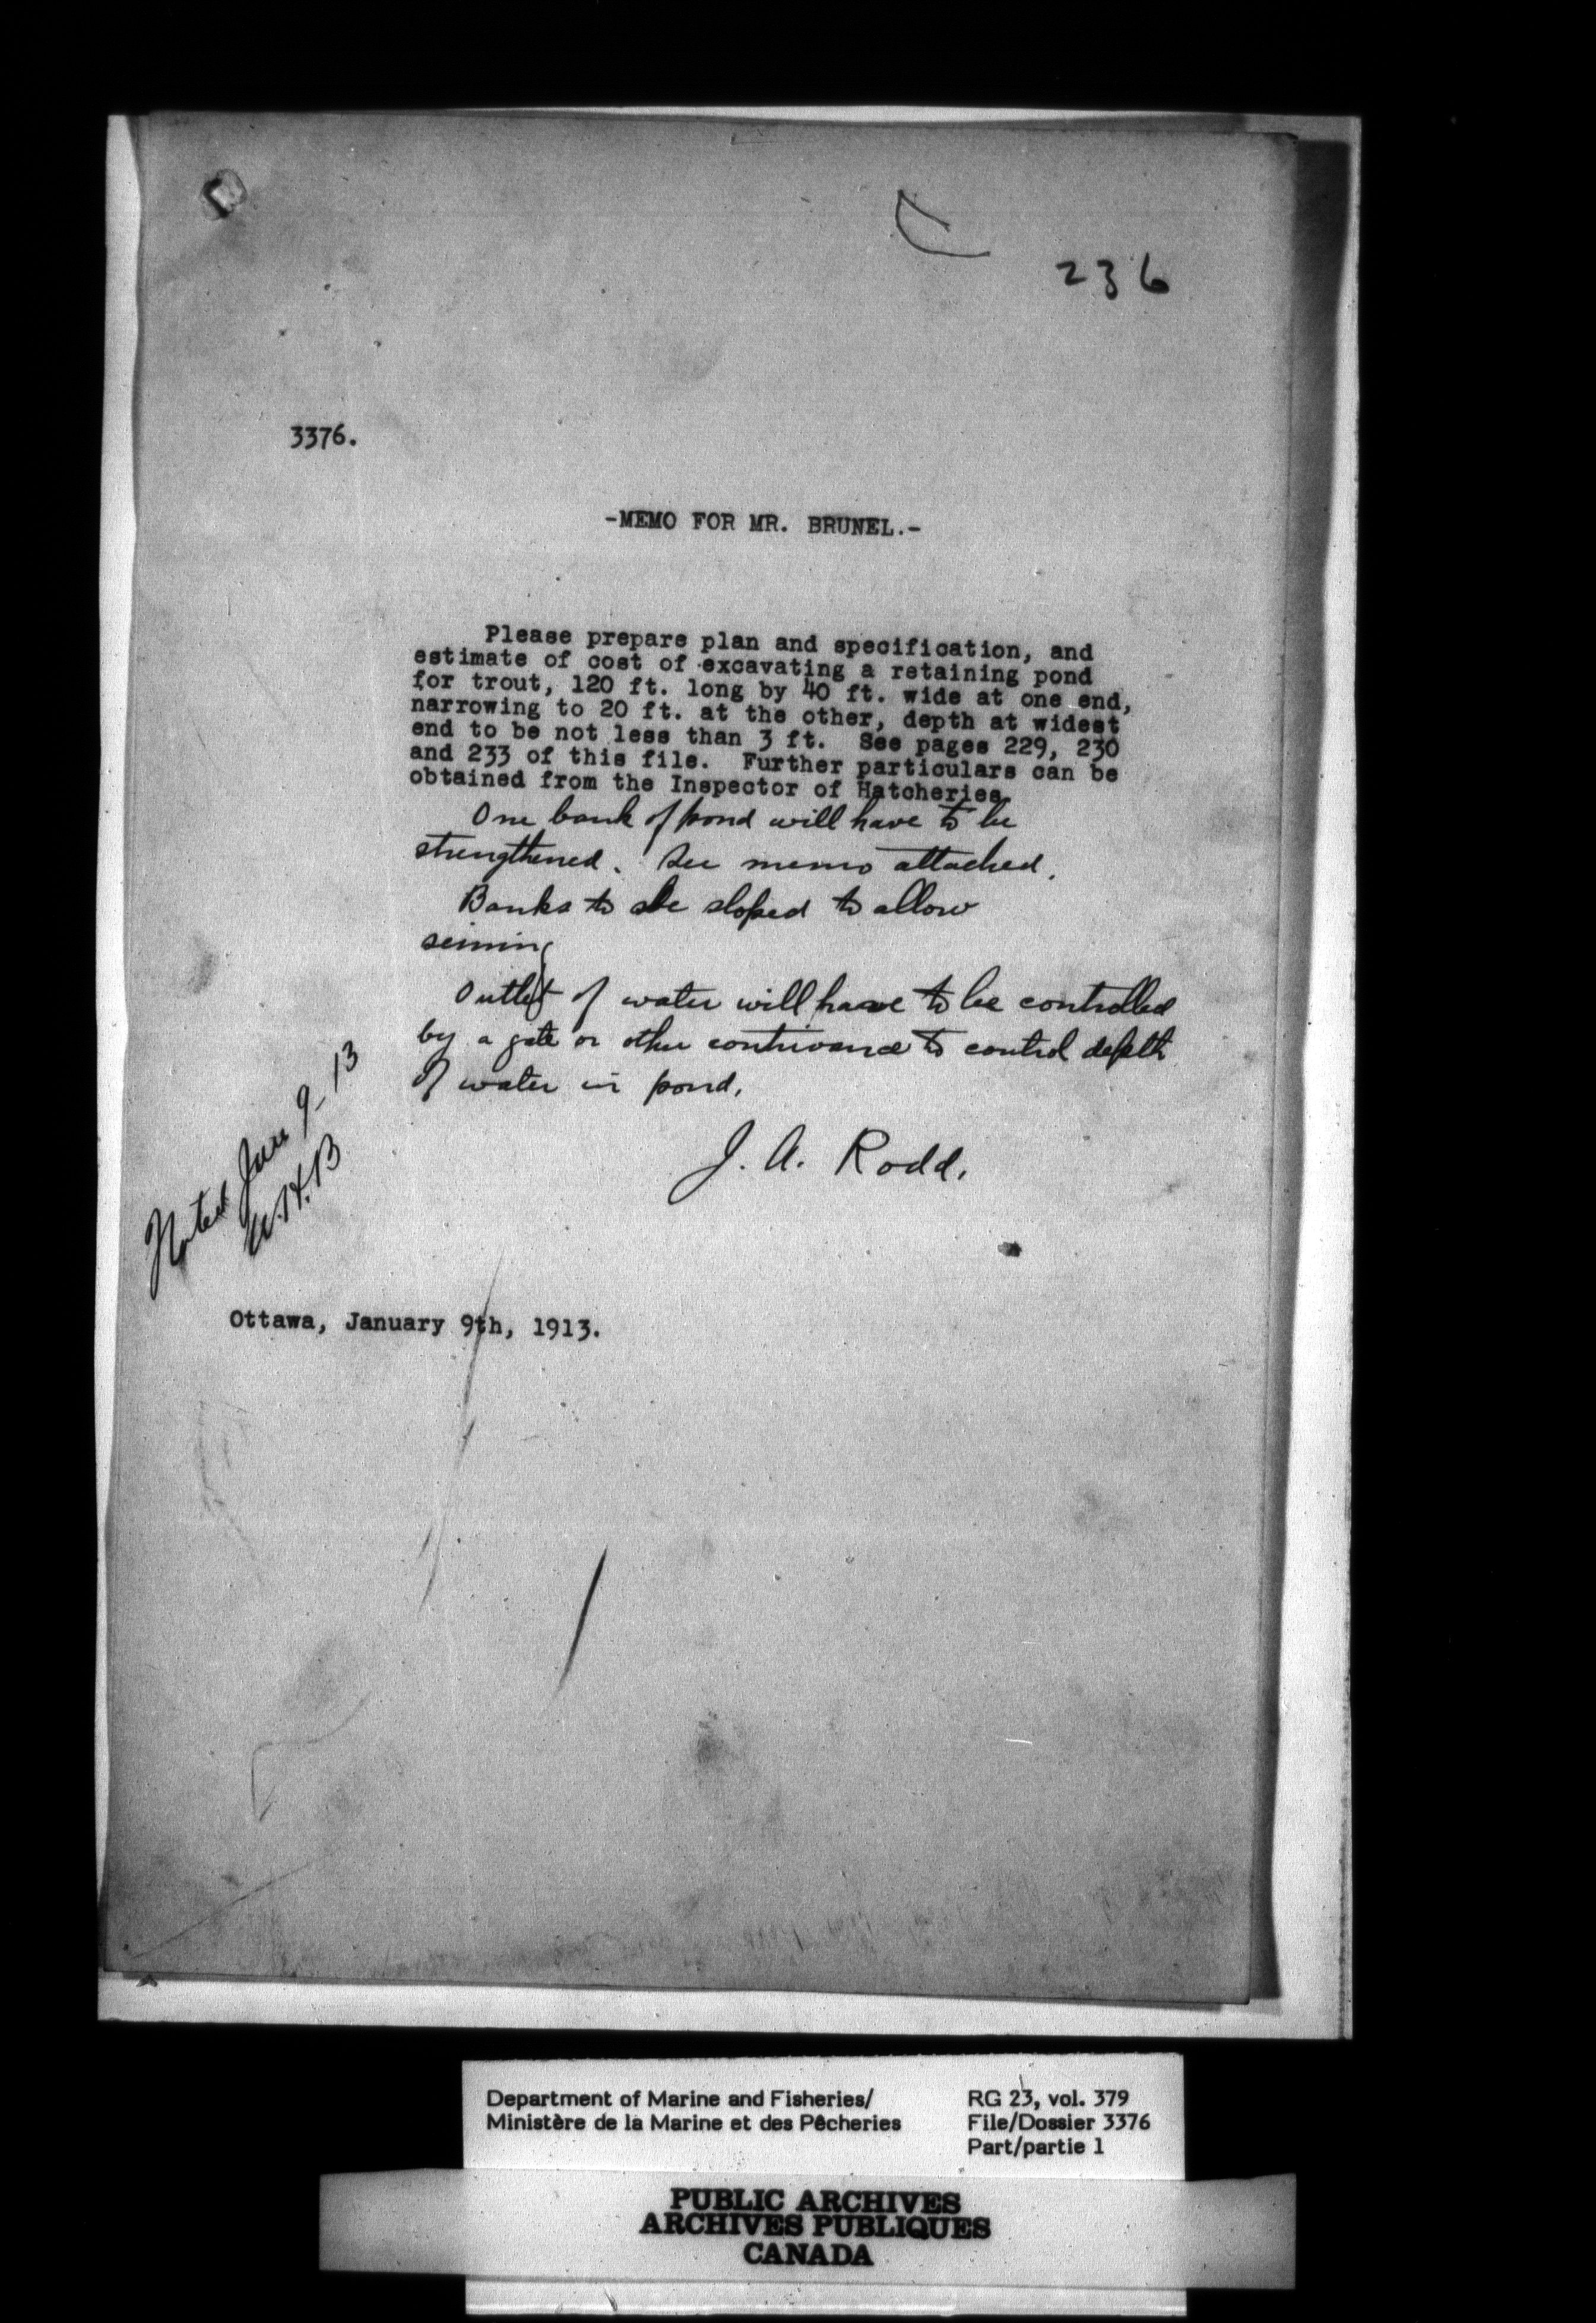 236
3376.
-MEMO FOR MR. BRUNEL.-
Please prepare plan and specification, and
estimate of cost of excavating a retaining pond
for trout, 120 ft. long by 40 ft. wide at one end,
narrowing to 20 ft. at the other, depth at widest
end to be not less than 3 ft. See pages 229, 230
and 233 of this file. Further particulars can be
obtained from the Inspector of Hatcheries.
One bank of pond will have to be
strengthened. See memo attached.
Banks to be sloped to allow
seining
Outlet of water will have to be controlled
by a gate or other contrivance to control depth
of water in pond.
J. A. Rodd.
Noted Jan 9-13
W.H.B
Ottawa, January 9th, 1913.
Department of Marine and Fisheries/
Ministère de la Marine et des Pêcheries
RG 23, vol. 379
File/Dossier 3376
Part/partie 1
PUBLIC ARCHIVES
ARCHIVES PUBLIQUES
CANADA